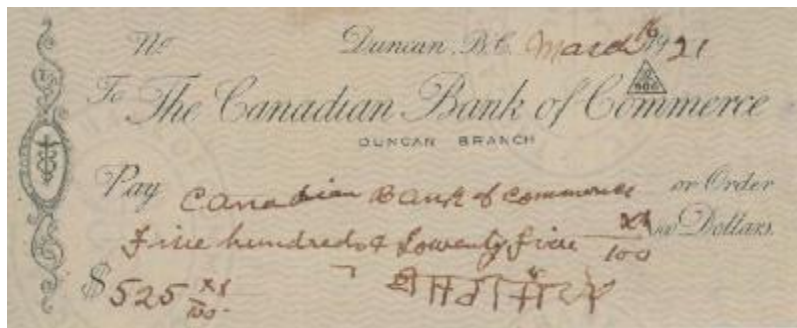 No Duncan, B.C. March 16 1921
To The Canadian Bank of Commerce
DUNCAN BRANCH
Pay Canadian Bank of Commerce or Order
Five hundred & Twenty five xx/100 Dollars.
$ 525 xx/100